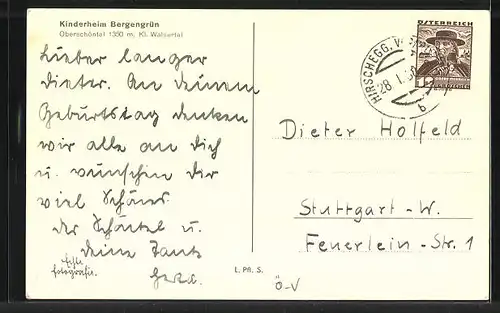 Kinderheim Bergengrün
Oberschöntal 1350 m; Kl. Walsertal
Lieber langer
Dieter. An deinem
Geburtstag denken
wir alle an dich
u. wünschen dir
viel Schönes
der u.
deine Tante
Gerda.
Echte
Fotografie.
L. Pfl. S.
Ö-V
ÖSTERREICH
12 GROSCHEN
HIRSCHEGG,
28. I.
b
Dieter Holfeld
Stuttgart-W.
Feuerlein-Str. 1